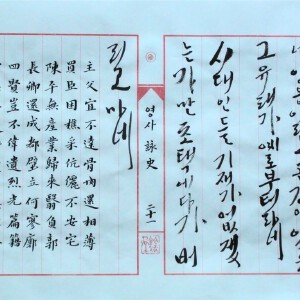 그 유래가 예로부터라네
시대인들 기재가 없겠
는가만 초택에다가 버
마네
영사 詠史 二十一
主父宦不達骨肉還相薄
買臣困樵采伉儷不安宅
陳平無產業歸來翳負郭
長卿還成都壁立何寥廓
四賢豈不偉遺烈光篇籍